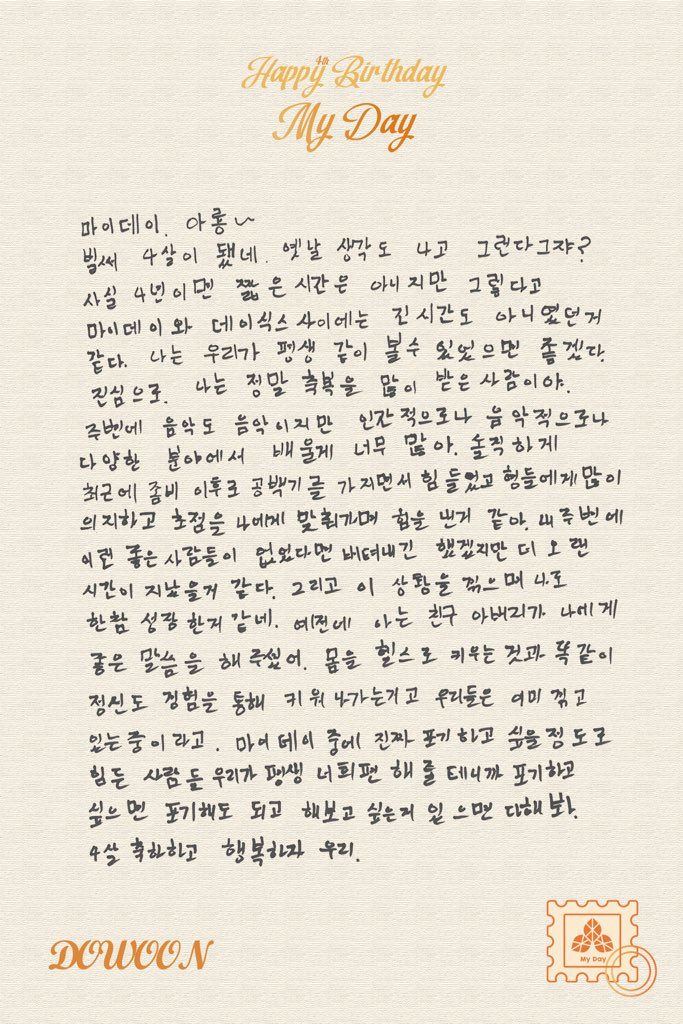 4th
Happy Birthday
My Day
마이데이. 아롱~
벌써 4살이 됐네. 옛날 생각도 나고 그런다그쟈?
사실 4년이면 짧은 시간은 아니지만 그렇다고
마이데이와 데이식스사이에는 긴시간도 아니였던거
같다. 나는 우리가 평생 같이 볼수 있었으면 좋겠다.
진심으로. 나는 정말 축복을 많이 받은사람이야.
주변에 음악도 음악이지만 인간적으로나 음악적으로나
다양한 분야에서 배울게 너무 많아. 솔직하게
최근에 좀비 이후로 공백기를 가지면서 힘들었고 형들에게많이
의지하고 초점을 나에게 맞춰가며 힘을 낸거 같아. 내주변에
이런 좋은사람들이 없었다면 버텨내긴 했겠지만 더 오랜
시간이 지났을거 같다. 그리고 이 상황을 겪으며 나도
한참 성장한거같네. 예전에 아는 친구 아버지가 나에게
좋은 말씀을 해주셨어. 몸을 헬스로 키우는것과 똑같이
정신도 경험을 통해 키워나가는거고 우리들은 이미 겪고
있는중이라고. 마이데이 중에 진짜 포기하고 싶을정도로
힘든 사람들 우리가 평생 너희편 해줄테니까 포기하고
싶으면 포기해도 되고 해보고 싶은거 있으면 다해봐.
4살 축하하고 행복하자 우리.
DOWOON
My Day